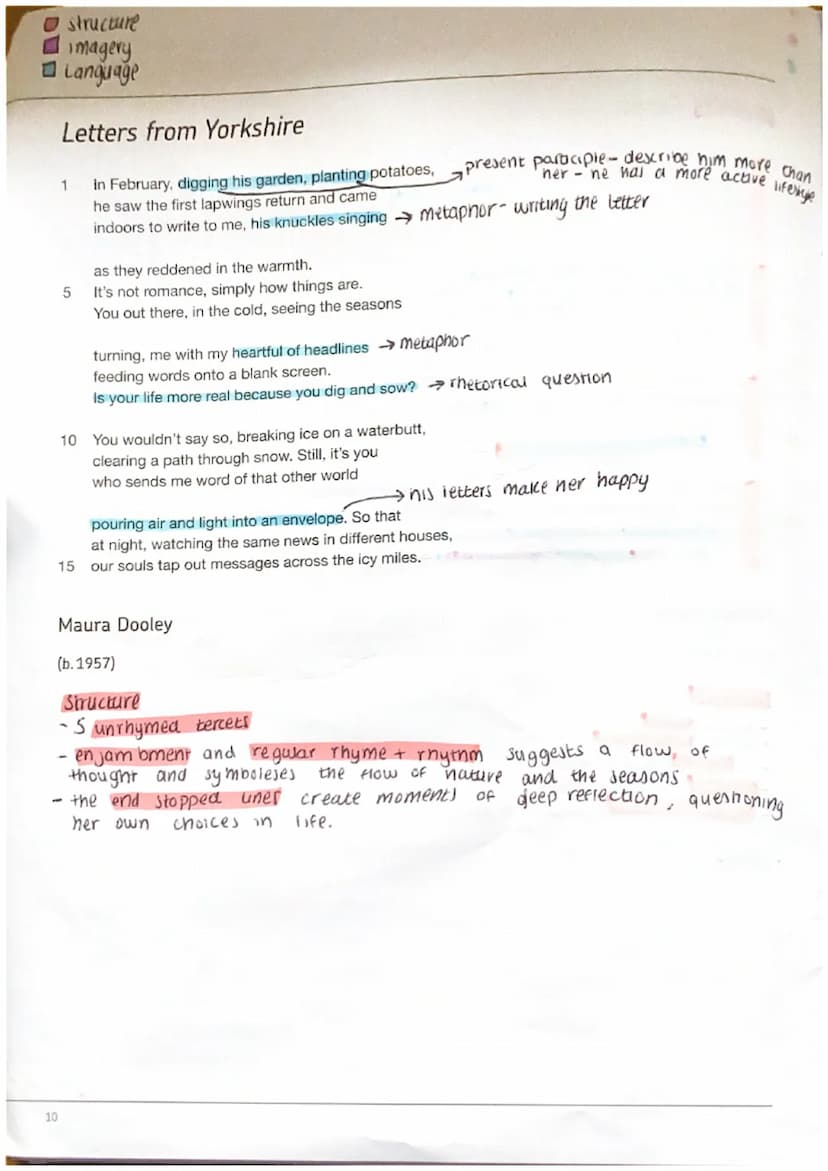 structure
imagery
Language
Letters from Yorkshire
1 In February, digging his garden, planting potatoes,
he saw the first lapwings return and came
indoors to write to me, his knuckles singing
→ present participle - describe him more than
her - he has a more active lifestyle
→ metaphor - writing the letter
as they reddened in the warmth.
5 It's not romance, simply how things are.
You out there, in the cold, seeing the seasons
turning, me with my heartful of headlines → metaphor
feeding words onto a blank screen.
Is your life more real because you dig and sow? → rhetorical question
10 You wouldn't say so, breaking ice on a waterbutt,
clearing a path through snow. Still, it's you
who sends me word of that other world
→ his letters make her happy
pouring air and light into an envelope. So that
at night, watching the same news in different houses,
15 our souls tap out messages across the icy miles.
Maura Dooley
(b.1957)
Structure
- 5 unrhymed tercets
- enjambment and regular rhyme + rhythm suggests a flow, of
thought and symboleses the flow of nature and the seasons
- the end stopped lines create moments of deep reflection, questioning
her own choices in life.
10